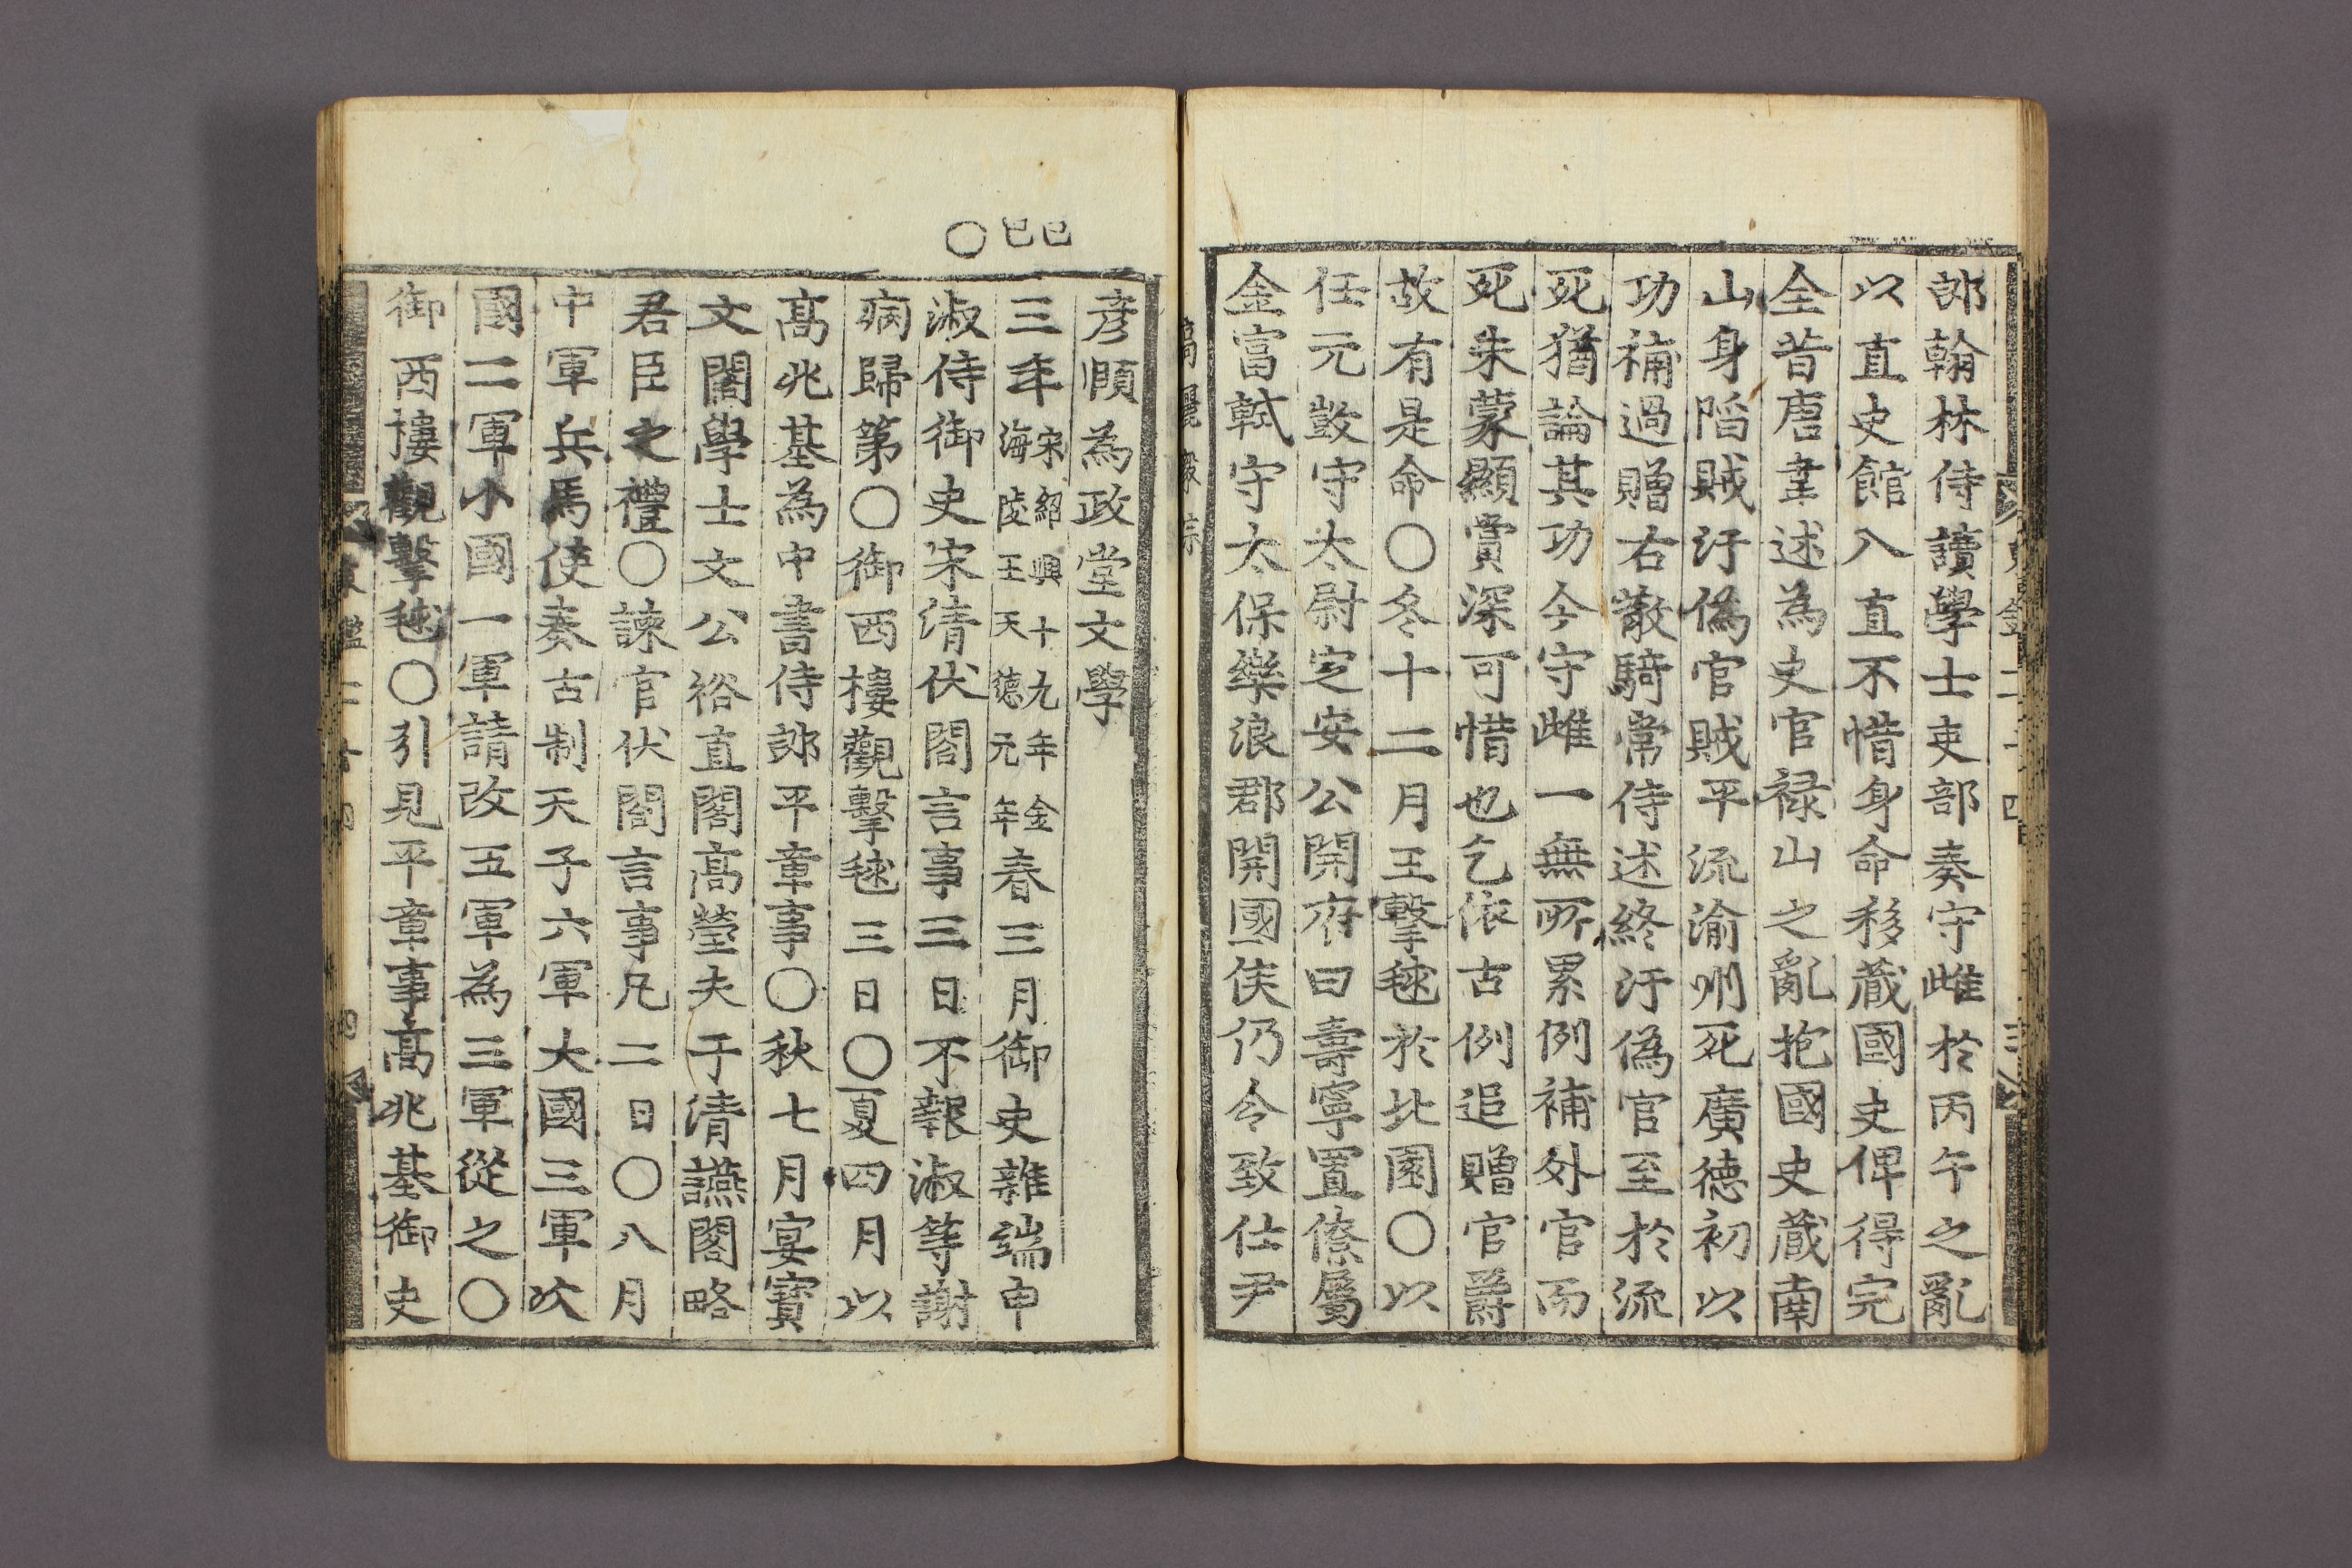 郎翰林侍讀學士吏部奏守雌於丙午之亂
以直史館入直不惜身命移藏國史俾得完
全昔唐韋述為史官祿山之亂抱國史藏南
山身陷賊汙偽官賊平流渝州死廣德初以
功補過贈右散騎常侍述終汙偽官至於流
死猶論其功今守雌一無所累例補外官而
死未蒙顯賞深可惜也乞依古例追贈官爵
故有是命○冬十二月王擊毬於北園○以
任元敱守太尉定安公開府曰壽寧置僚屬
金富軾守太保樂浪郡開國侯仍令致仕尹
彦頤為政堂文學
三年宋紹興十九年金海陵王天德元年春三月御史雜端申
淑侍御史宋清伏閤言事三日不報淑等謝
病歸第○御西樓觀擊毬三日○夏四月以
高兆基為中書侍郎平章事○秋七月宴寶
文閣學士文公裕直閣高瑩夫于清讌閣略
君臣之禮○諫官伏閤言事凡二日○八月
中軍兵馬使奏古制天子六軍大國三軍次
國二軍小國一軍請改五軍為三軍從之○
御西樓觀擊毬○引見平章事高兆基御史
己巳
○